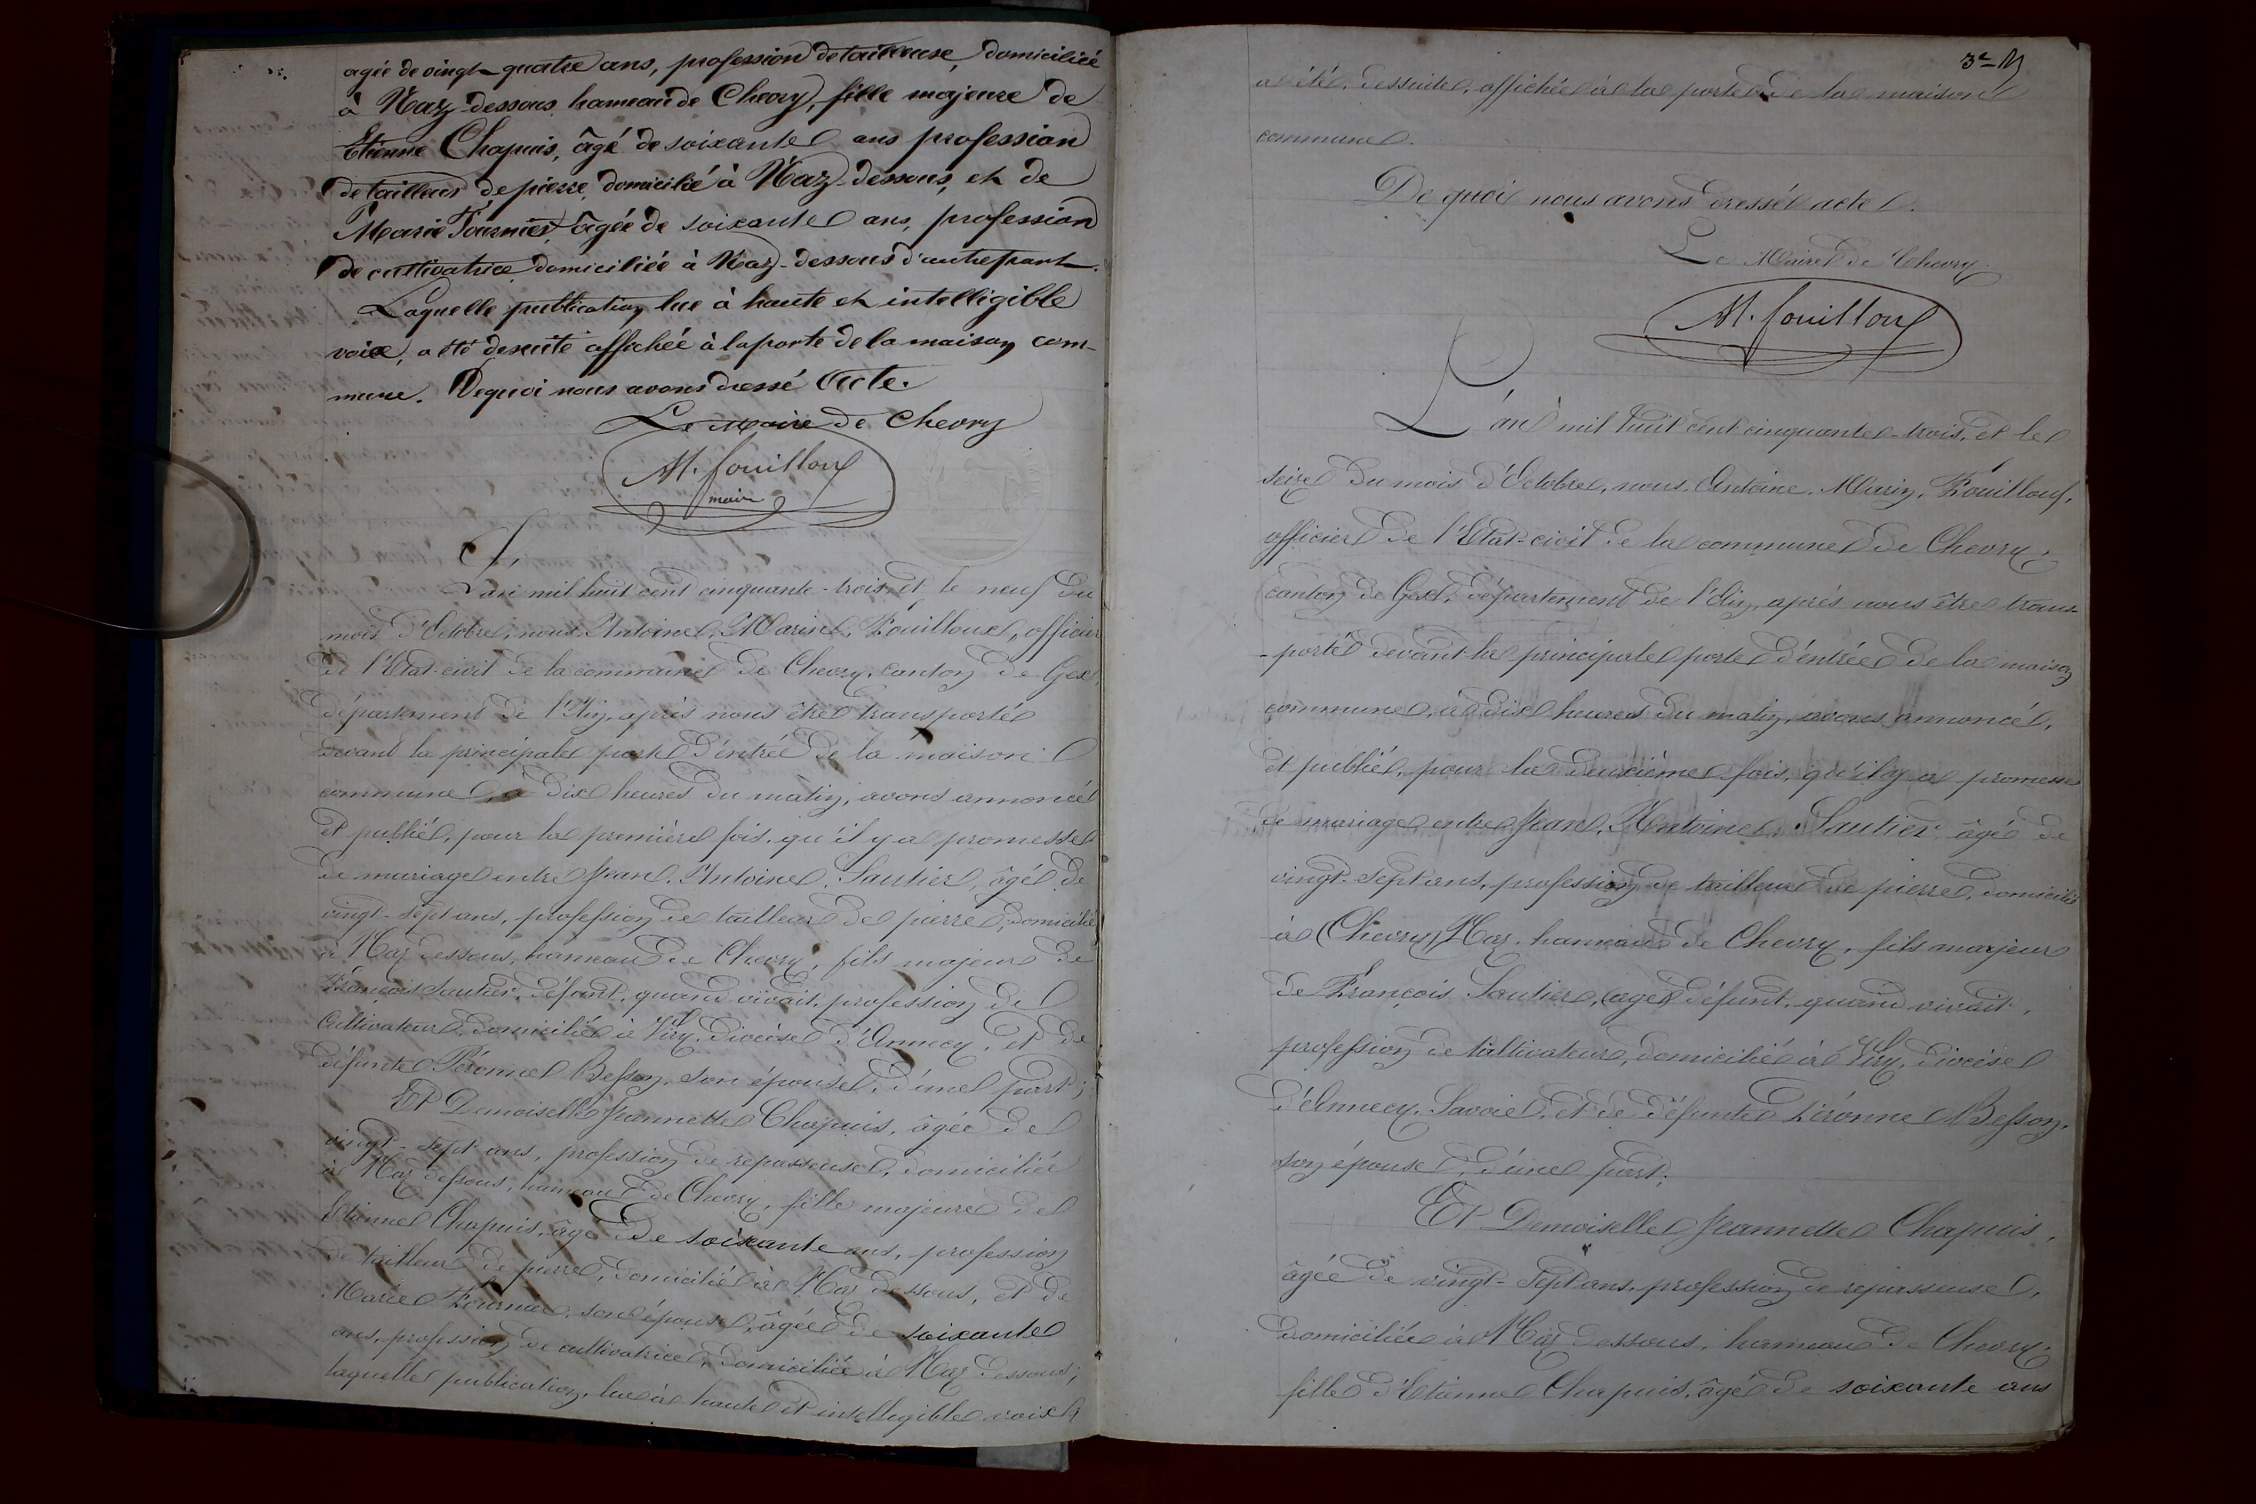 agée de vingt-quatre ans, profession de tailleuse, domiciliée
à Naz-dessous hameau de Chevry, fille majeure de
Etienne Chapuis, âgé de soixante ans profession
de tailleur de pierre, domicilié à Naz-dessous, et de
Marie Fournier, âgée de soixante ans, profession
de cultivatrice domiciliée à Naz-dessous d'autre part.
Laquelle publication lue à haute et intelligible
voix, a été desuite affichée à la porte de la maison com-
mune. De quoi nous avons dressé Acte.
Le Maire de Chevry
M. fouilloux
maire
L'an mil huit cent cinquante-trois, et le neuf du
mois d'Octobre, nous Antoine, Marie, Fouilloux, officier
de l'Etat-civil de la commune de Chevry, canton de Gex,
département de l'Ain, après nous être transporté
devant la principale porte d'entrée de la maison
commune, à dix heures du matin, avons annoncé
et publié, pour la première fois, qu'il y a promesse
de mariage entre Jean, Antoine, Sautier, âgé de
vingt-sept ans, profession de tailleur de pierre, domicilié
à Naz dessous, hameau de Chevry, fils majeur de
François Sautier, défunt, quand vivait, profession de
Cultivateur, domicilié à Viry, diocèse d'Annecy, et de
défunte Péronne Besson, son épouse, d'une part;
Et Demoiselle Jeannette Chapuis, âgée de
vingt-sept ans, profession de repasseuse, domiciliée
à Naz dessous, hameau de Chevry, fille majeure de
Etienne Chapuis, âgé de soixante ans, profession
de tailleur de pierre, domicilié à Naz dessous, et de
Marie Fournier, son épouse, âgée de soixante
ans, profession de cultivatrice, domiciliée à Naz dessous;
laquelle publication, lue à haute et intelligible voix
3e M
a été, dessuite, affichée à la porte de la maison
commune.
De quoi nous avons dressé acte.
Le Maire de Chevry.
M. fouilloux
L'an mil huit cent cinquante-trois, et le
seize du mois d'Octobre, nous, Antoine, Marin, Fouilloux,
officier de l'Etat-civil de la commune de Chevry,
canton de Gex, département de l'Ain, après nous être trans-
-porté devant la principale porte d'entrée de la maison
commune, à dix heures du matin, avons annoncé,
et publié, pour la deuxième fois, qu'il y a promesse
de mariage entre Jean, Antoine, Sautier âgé de
vingt-sept ans, profession de tailleur de pierre, domicilié
à (Chevry) Naz, hameau de Chevry, fils majeur
de François Sautier, (agé) défunt, quand vivait,
profession de cultivateur, domicilié à Viry, diocèse
d'Annecy, Savoie, et de défunte Péronne Besson,
son épouse, d'une part;
Et Demoiselle Jeannette Chapuis,
âgée de vingt-sept ans, profession de repasseuse,
domiciliée à Naz dessous, hameau de Chevry,
fille d'Etienne Chapuis, âgé de soixante ans